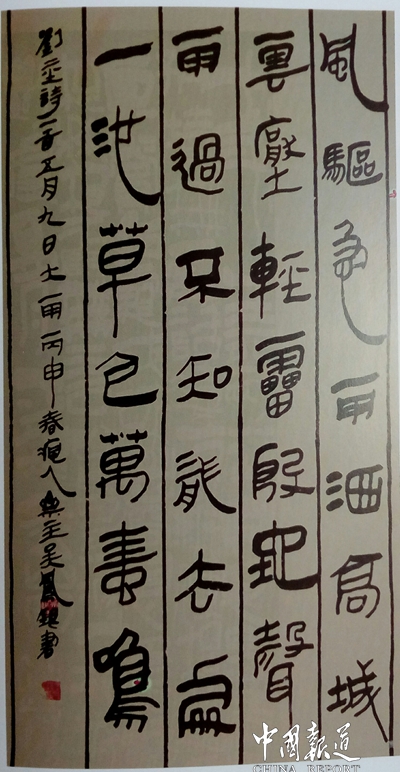 風驅急雨洒高城
雲壓輕雷殷地聲
雨過不知龍去處
一池草色萬蛙鳴
劉基詩一首五月九日大雨丙申春人主吴鳳書
中國報道
CHINA REPORT